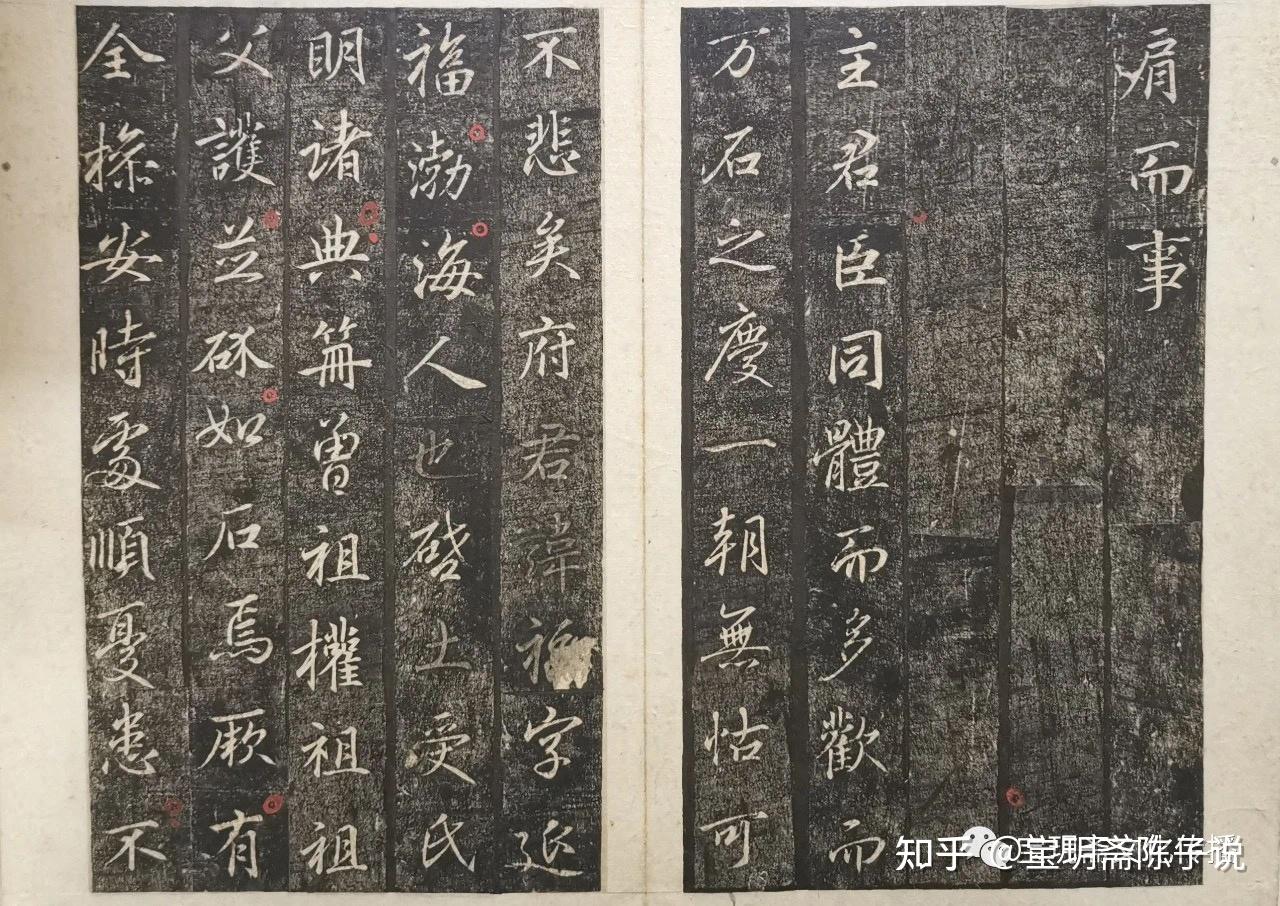 肩而事
主君臣同體而多歡而
万石之慶一朝無怙可
不悲矣府君諱字延
福渤海人也啓土受氏
明諸典笧曾祖權祖祖
父護並砎如石焉厥有
全操安時處順憂患不
知乎